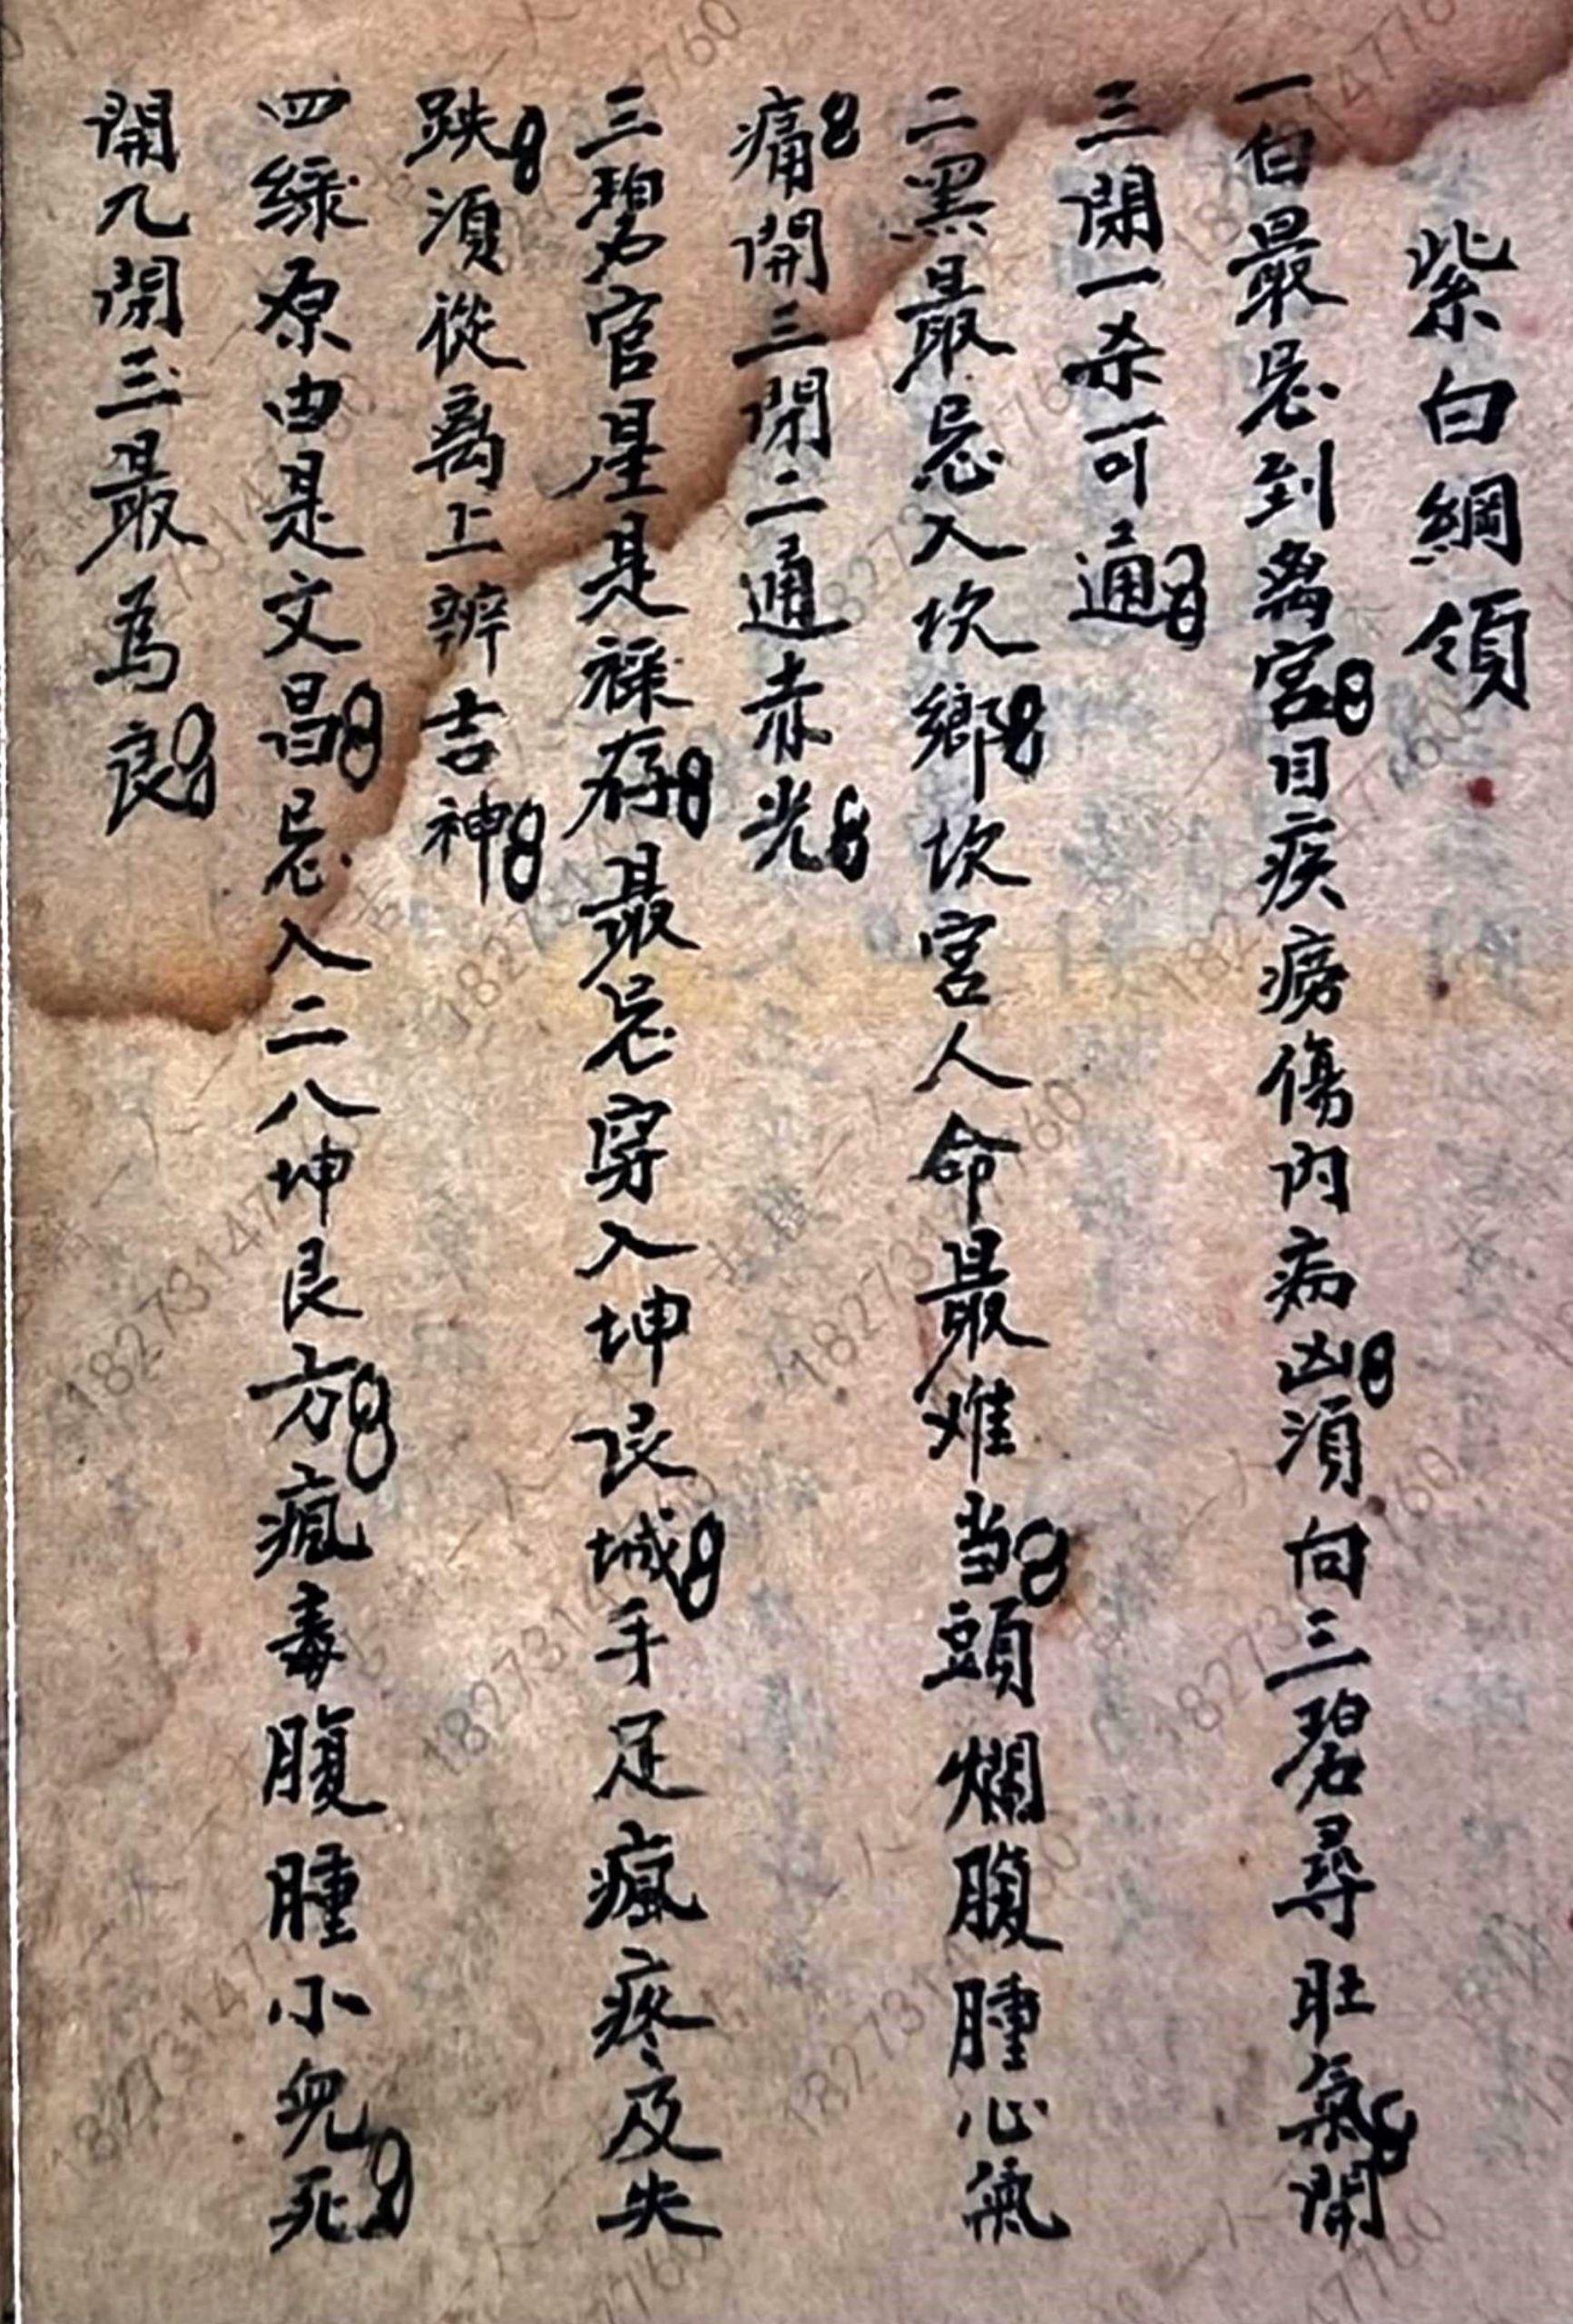 紫白綱領
一白最忌到离宮目疾癆傷内病凶須向三碧尋旺氣開
三閉一杀可通
二黑最忌入坎鄉坎宮人命最难当頭爛腹腫心氣
痛開三閉二通赤光
三碧官星是祿存最忌穿入坤艮城手足瘋疼及失
跌須從离上辨吉神
四绿原由是文昌忌入二八坤艮方瘋毒腹腫小兒死
開九閉三最為良